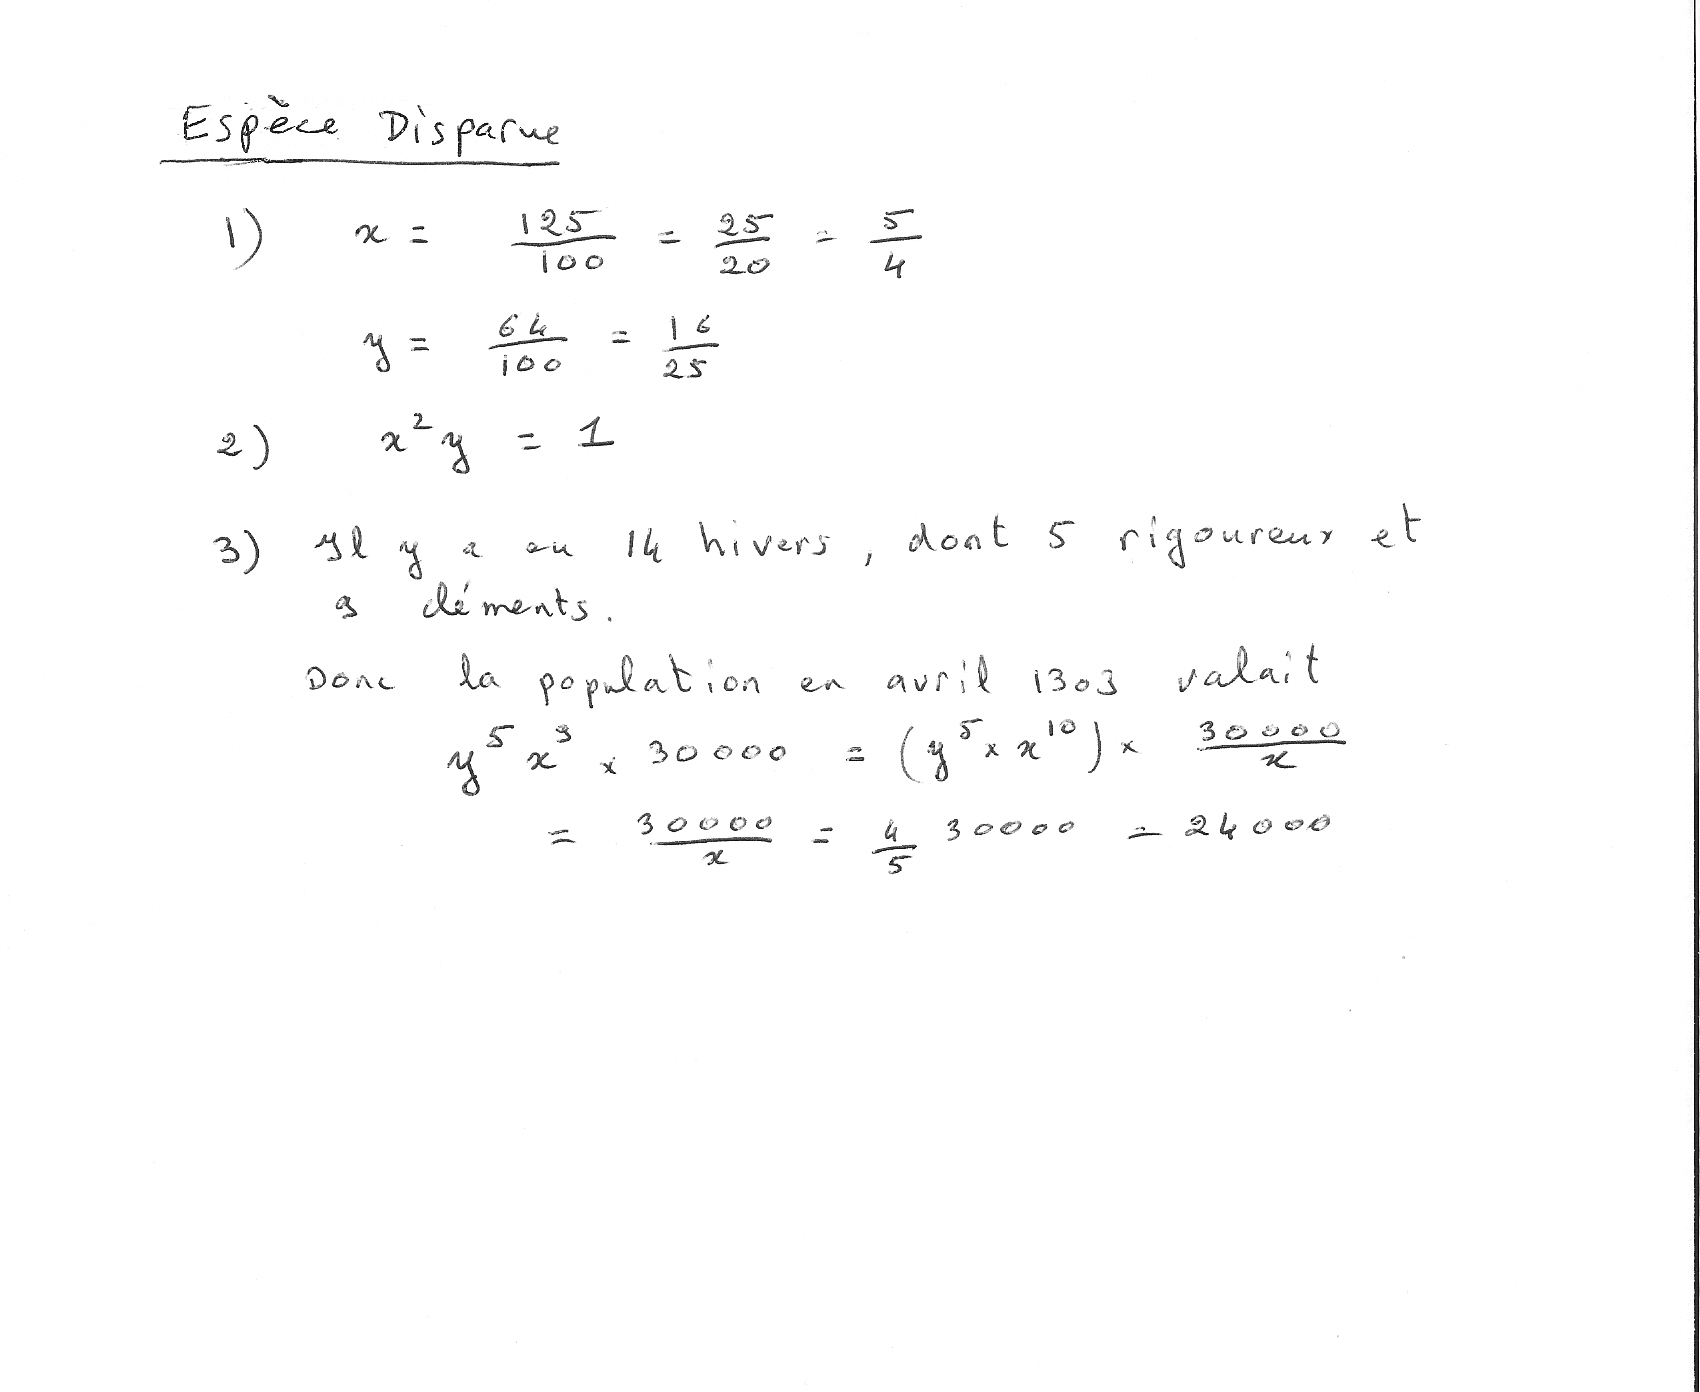 Espèce Disparue
1) x = 125/100 = 25/20 = 5/4
y = 64/100 = 16/25
2) x² y = 1
3) Il y a eu 14 hivers, dont 5 rigoureux et
9 cléments.
Donc la population en avril 1303 valait
y⁵ x⁹ × 30000 = (y⁵ × x¹⁰) × 30000/x
= 30000/x = 4/5 30000 = 24000